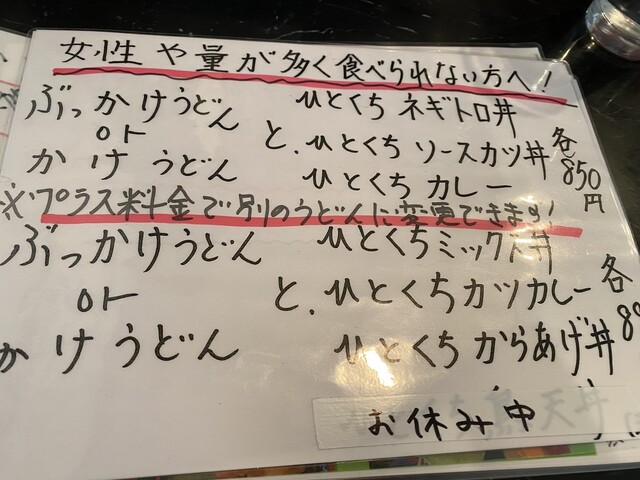 女性や量が多く食べられない方へ!
ぶっかけうどん
or
かけうどん
と.
ひとくちネギトロ丼
ひとくちソースカツ丼
ひとくちカレー
各850円
※プラス料金で別のうどんに変更できます!
ぶっかけうどん
or
かけうどん
と.
ひとくちミックス丼
ひとくちカツカレー
ひとくちからあげ丼
各
お休み中
天丼